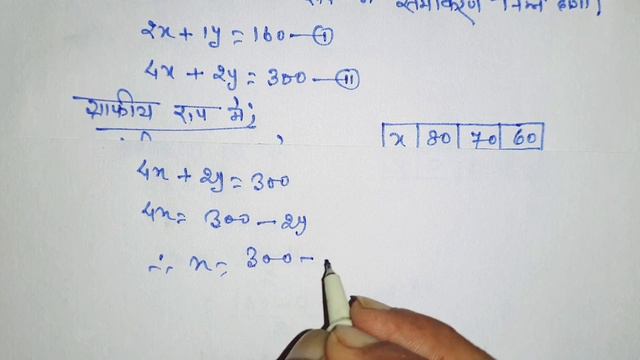 समीकरण निम्न होगा।
2x + 1y = 160 — ①
4x + 2y = 300 — ⑪
ग्राफीय रूप में,
x 80 70 60
4x + 2y = 300
4x = 300 - 2y
∴ x = 300 -